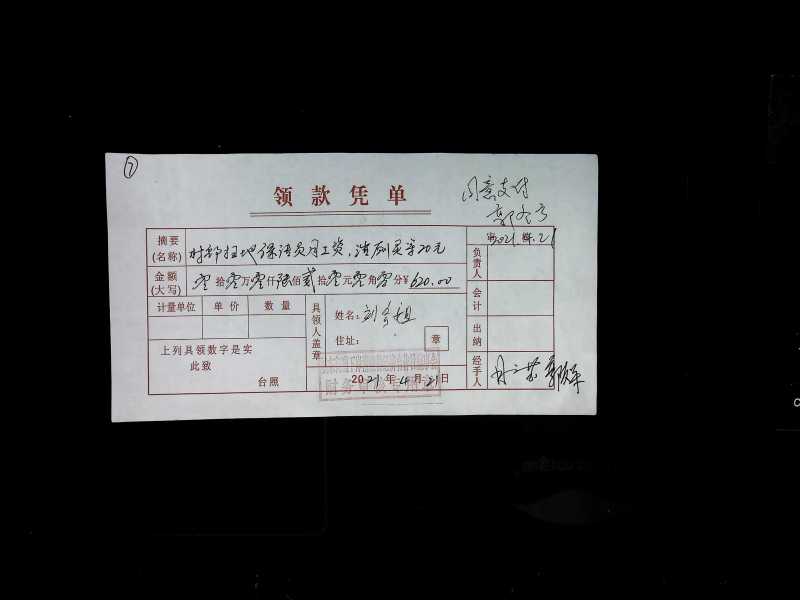 ⑦
领款凭单
同意支付
2021.4.21
摘要
(名称)
村部扫地保洁员月工资,清厕买字20元
金额
(大写)
零拾零万零仟陆佰贰拾零元零角零分¥ 620.00
计量单位 单价 数量
上列具领数字是实
此致
台照
具领人盖章
姓名:刘
住址:
章
2021年4月21日
财务
负责人
会计
出纳
经手人